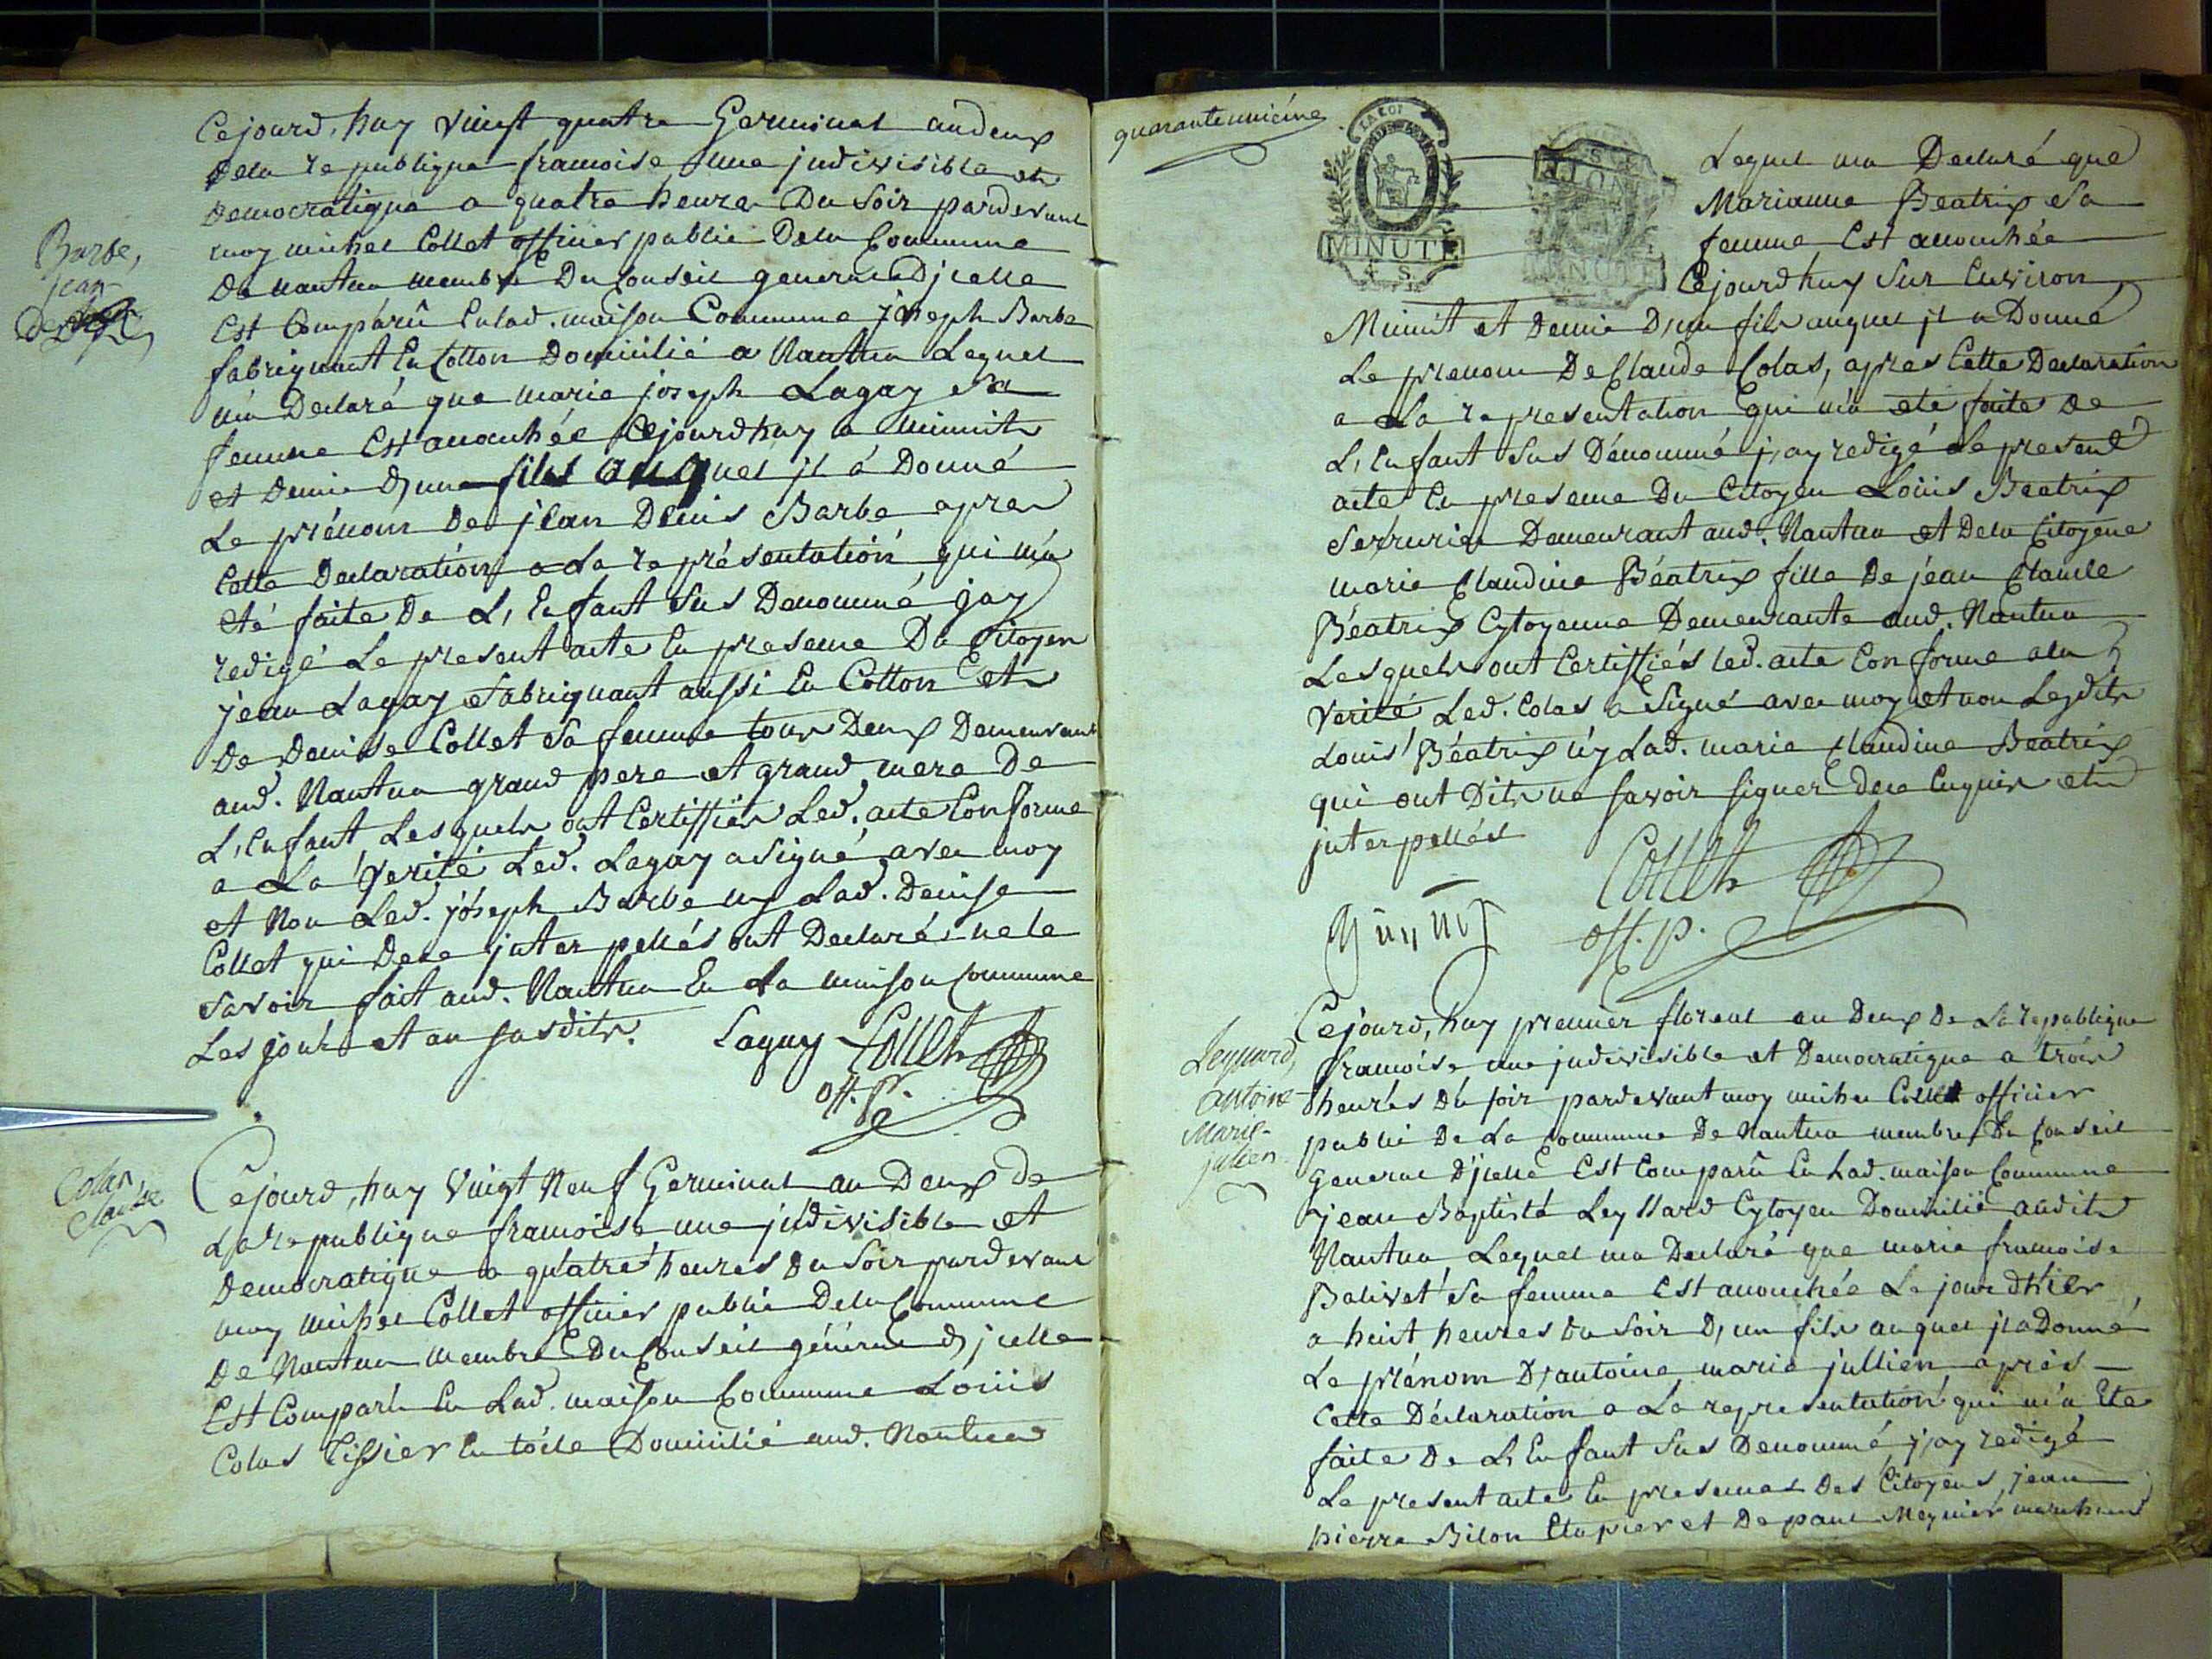 Cejourd,huy vinst quatre Germinal andeux
dela republique francoise une jndivisible et
democratique a quatre heures Du Soir pardevant
moy michel Collet officier public Dela Commune
De nantua membre Du Conseil general djcelle
Barbe,
jean
Est Comparû Enlad. maison Commune joseph Barbe
fabriquant En Cotton Domicilié a Nantua Lequel
m'a Declaré que marie joseph Lagay Sa
femme Est accouchée Cejourdhuy a minuit
et Demie D'une fils auquel jl à Donné
Le prénom De jean Denis Barbe apres
Cette Declaration a La représentation qui m'a
eté faite De L, Enfant Sus Denommé jay
redigé Le present acte En presence Du Citoyen
jean Lagay fabriquant aussi En Cotton et
De Denise Collet Sa femme tous Deux Demeurant
aud. Nantua grand pere et grand mere De
L,Enfant Lesquels ont Certiffiés Led. acte Conforme
a La Verité Led. Lagay a Signé avec moy
et Non Led. joseph Barbe ny Lad. Denise
Collet qui Dece jnterpellés ont Declarés ne le
Savoir fait aud. Nantua En La maison Commune
Les jour et an Susdits. Lagay Collet
off. p.
Colas
Claude
Cejourd,huy Vingt Neuf Germinal an Deux de
La republique francoise une jndivisible et
Democratique a quatre heures Du Soir pardevant
moy michel Collet officier public Dela Commune
De Nantua membre Du Conseil général djcelle
Est Comparû En Lad. maison Commune Loüis
Colas Tissier En toile Domicilié aud. Nantua
quarante unième
LA LOI
MINUTE
MINUTE
Lequel ma Declaré que
Marianne Beatrix Sa
femme Est accouchée
Cejourdhuy Sur Environ
Minuit et Demie D'un fils auquel jl a Donné
Le prenom De Claude Colas, apres Cette Declaration
a La representation qui m'a eté faite De
L,Enfant Sus Dénommé j,ay redigé Le present
acte En presence Du Citoyen Loüis Beatrix
Serrurier Demeurant aud. Nantua et Dela Citoyene
marie Claudine Béatrix fille De jean Claude
Béatrix Cytoyenne Demeurante aud. Nantua
Lesquels ont Certiffiés led. acte Conforme ala
Verité Led. Colas a Signé avec moy et non Lesdits
Louis Béatrix n'y Lad. marie Claudine Beatrix
qui ont Dits ne savoir signer dece Enquis et
jnterpellés
Collet
off. p.
Cejourd,huy premier floreal an Deux De La republique
Leyssard,
antoine
Marie-
julien
francoise une jndivisible et Democratique a trois
heurés Du soir pardevant moy michel Collet officier
public De La Commune De Nantua membre Du Conseil
general Djcelle Est Comparû En Lad. maison Commune
jean Baptiste Leyssard Cytoyen Domicilié audit
Nantua, Lequel ma Declaré que marie francoise
Balivet Sa femme Est accouchée Le jour dhier
a huit heures du Soir D,un fils auquel jl a Donné
Le prénom D,antoine marie jullien après
Cette Déclaration a La representation qui m'a Ete
faite De L,Enfant Sus Denommé, j,ay redigé
Le present acte En presences Des Citoyens jean
pierre Bilon Etapier et De paul Meynier marchand